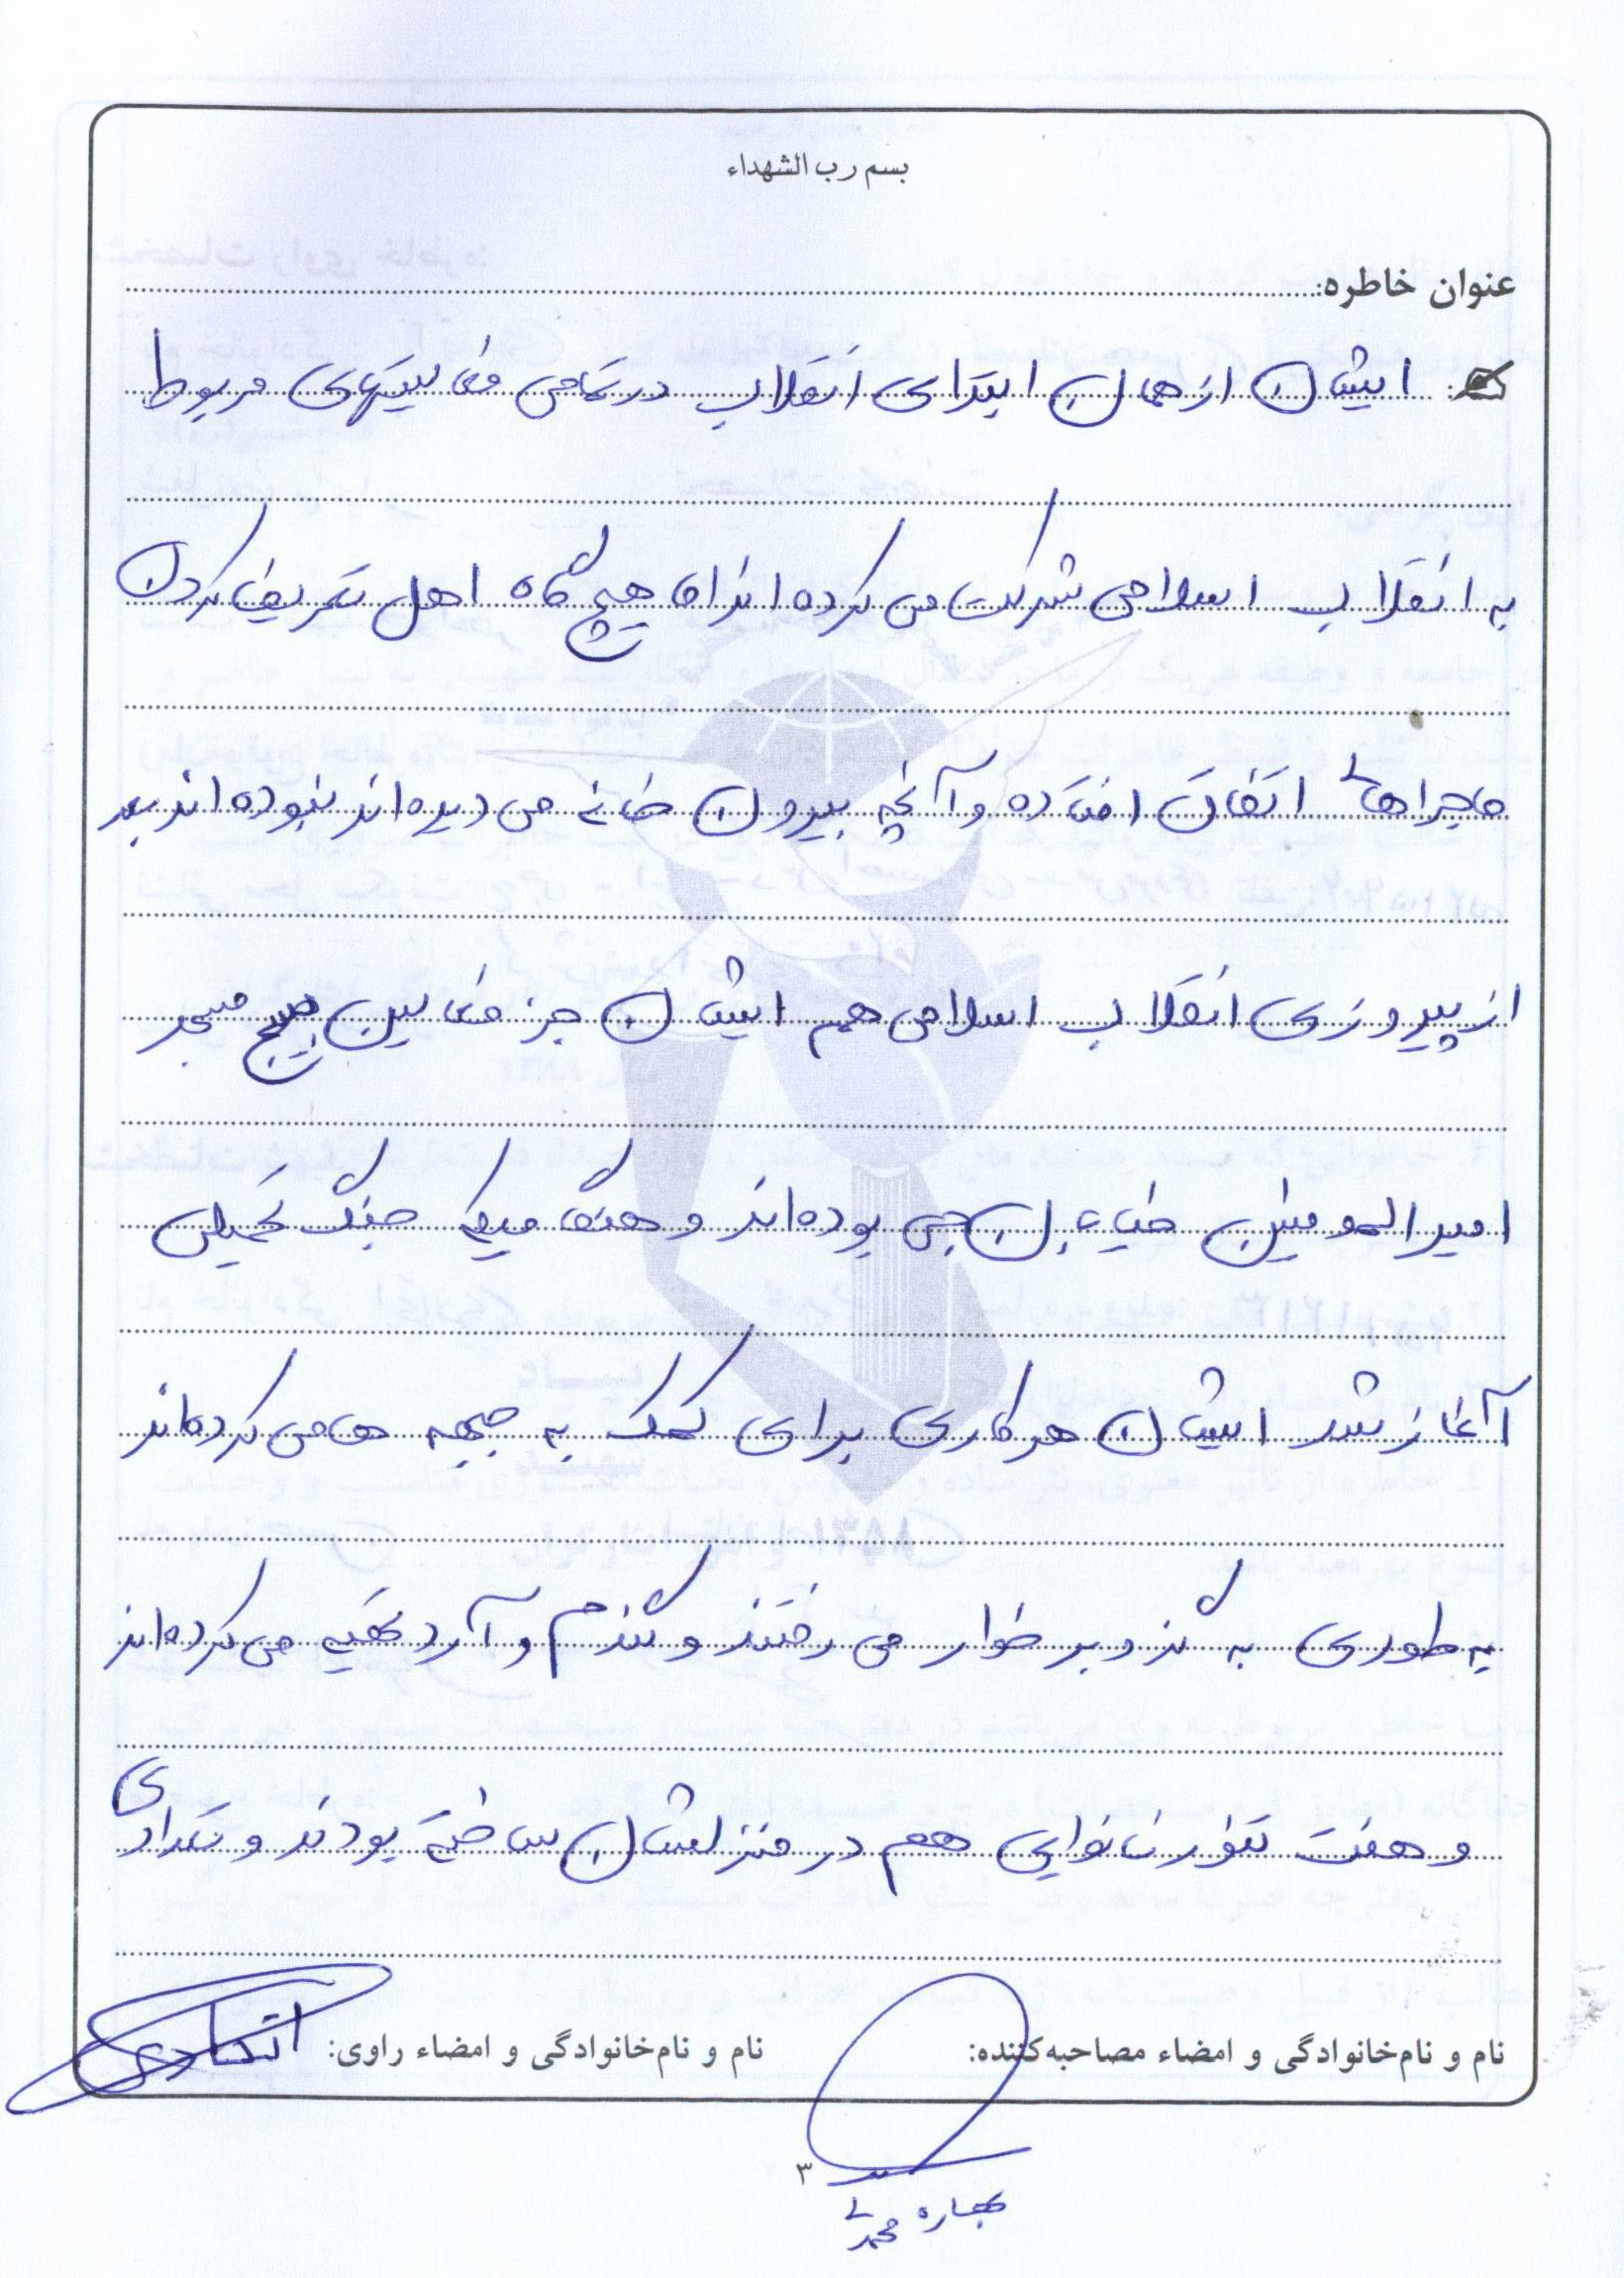 بسم رب الشهداء
عنوان خاطره:
ایشان از همان ابتدای انقلاب در تمامی فعالیتهای مربوط
به انقلاب اسلامی شرکت می کرده اند اما هیچ گاه اهل تعریف کردن
ماجراهای اتفاق افتاده و آنچه بیرون خانه می دیده اند نبوده اند بعد
از پیروزی انقلاب اسلامی هم ایشان جز فعالین بسیج مسجد
امیرالمومنین خیابان جی بوده اند و هنگامیکه جنگ تحمیلی
آغاز شد ایشان هر کاری برای کمک به جبهه ها می کرده اند
به طوری به گز و برخوار می رفتند و گندم و آرد تهیه می کرده اند
و هفت تنور نانوایی هم در منزلشان ساخته بودند و تعدادی
نام و نام‌خانوادگی و امضاء مصاحبه‌کننده:
نام و نام‌خانوادگی و امضاء راوی: اتحادی
۳